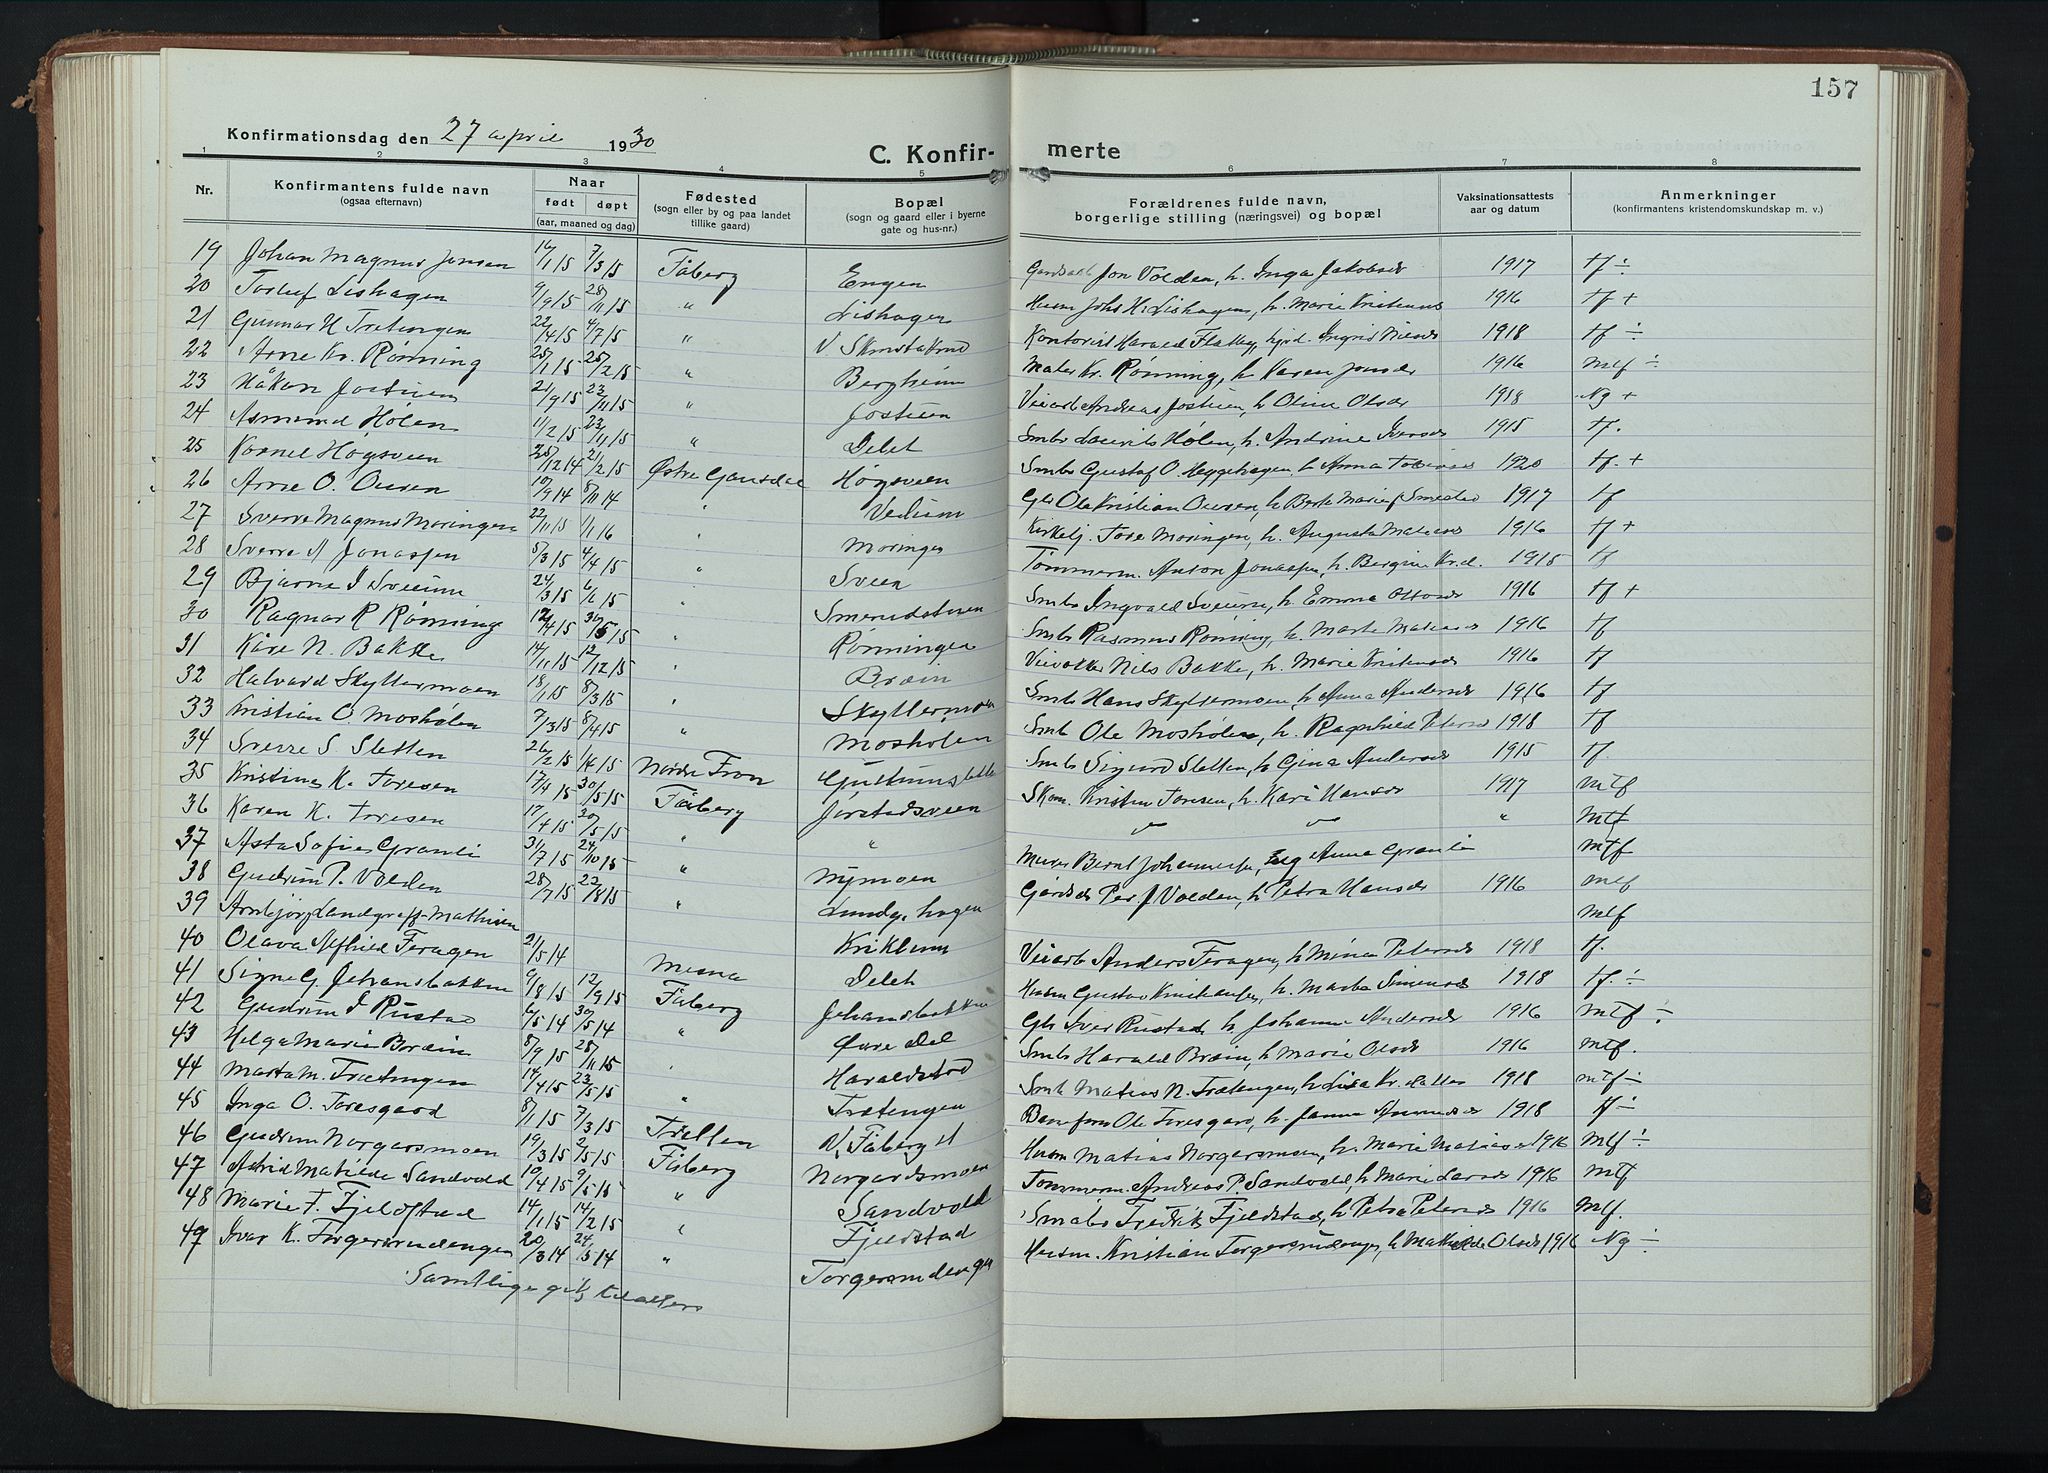 157
Konfirmationsdag den 27 april 1930
C. Konfir- merte
1 2 3 4 5 6 7 8
Nr. Konfirmantens fulde navn (ogsaa efternavn) Naar født døpt (aar, maaned og dag) Fødested (sogn eller by og paa landet tillike gaard) Bopæl (sogn og gaard eller i byerne gate og hus-nr.) Forældrenes fulde navn, borgerlige stilling (næringsvei) og bopæl Vaksinationsattests aar og datum Anmerkninger (konfirmantens kristendomskundskap m. v.)
19 Johan Magnus Jonsen 16/1 15 7/3 15 Fåberg Engen Jon Volden, h. Inga Jakobsdr 1917 tf ÷
20 Torleif Lishagen 9/9 15 28/11 15 " Lishagen Husm Johs H. Lishagen, h. Marie Kristensdr 1916 tf +
21 Gunnar H Trætengen 22/4 15 4/7 15 " Kontorist Harald Flatby, Ingrid Nilsdr 1918 tf ÷
22 Arne Kr. Rønning 25/1 15 25/2 15 " Bergheim Maler Kr. Rønning, h Karen Jonsdr 1916 mlf ÷
23 Håkon Jostuen 21/9 15 23/11 15 " Jostuen Veiarb Andreas Jostuen, h Oline Olsdr 1918 Ng +
24 Asmund Holen 11/2 15 23/11 15 " Delet Smbr Laurits Holen, h. Andrine Iversdr 1915 tf.
25 Kornel Høgsveen 25/12 14 21/2 15 Østre Gausdal Høgsveen Smbr Gustaf O. Heggehagen h Anna 1920 tf. +
26 Arne O. Ouren 10/9 14 8/11 14 " Vedum Gbr Ole Kristian Ouren, h Berte Marie Smestad 1917 tf
27 Sverre Magnus Moringen 22/11 15 1/1 16 " Moringen Kirketj. Tore Moringen, h. Augusta 1916 tf +
28 Sverre A Jonassen 5/3 15 4/4 15 " Sveen Tømmerm. Anton Jonassen, h. Bergine Kr.d. 1915 tf
29 Bjarne I Sveum 24/3 15 " Smbr Ingvald Sveum, h Emma Ottosdr 1916 tf +
30 Ragnar R Rønning 12/4 15 30/5 15 " Rønningen Smbr Rasmus Rønning, h. Marte 1916 tf
31 Kåre N. Bakke 14/11 15 12/12 15 " Bræin Veivokter Nils Bakke, h. Marie Kristensdr 1916 tf
32 Halvard Skyttermoen 18/1 15 8/3 15 " Skyttermoen Smbr Hans Skyttermoen, h Anna Andersdr 1916 tf
33 Kristian O. Mosholen 7/3 15 8/4 15 " Mosholen Smbr Ole Mosholen, h. Ragnhild Petersdr 1918 tf
34 Sverre S. Sletten 26/2 15 Nordre Fron Smbr Sigurd Sletten, h Gina Andersdr 1915 tf.
35 Kristine K. Toresen 17/4 15 30/5 15 Fåberg Jørstadsveen Skom. Kristen Toresen, h. Kari Hansdr 1917 mtf
36 Karen K. Toresen 17/4 15 30/5 15 " " " " " mtf
37 Asta Sofie Granli 31/7 15 24/10 15 " Nymoen Murer Bernt Johannessen, og Anna Granli mtf
38 Gudrun P. Volden 28/7 15 22/8 15 " Gårds Per J Volden, h Petra Hansdr 1916 mlf
39 Arnbjørg Landgraff-Mathisen mlf
40 Olava Alfhild Feragen 21/5 14 Mesna Delet Veiarb Anders Feragen, h Mina Petersdr 1918 tf.
41 Signe G. Johansbakken 9/8 15 12/9 15 Fåberg Johansbakken Husm Gustav Kristiansen, h. Marta Simensdr 1918 tf. ÷
42 Gudrun I Rustad 6/5 14 30/5 14 " Øvre Del Gbr Iver Rustad h Johanne Andersdr 1916 mtf ÷
43 Helga Marie Bræin 8/9 15 28/11 15 " Haraldstad Smbr Harald Bræin, h Marie Olsdr 1916 mtf.
44 Marta M. Trætengen 14/4 15 23/5 15 " Trætengen Smbr Matias N. Trætengen, h Lisa Kr. datter 1918 mtf ÷
45 Inga O. Toresgard 8/1 15 7/3 15 Tretten V. Fåberg st Baneform Ole Toresgard, h. Janna 1918 tf ÷
46 Gudrun Norgardsmoen 19/3 15 2/5 15 Fåberg Norgardsmoen Husm Matias Norgardsmoen, h. Marie Matiasdr 1916 mlf ÷
47 Astrid Matilde Sandvold 10/4 15 9/5 15 " Sandvold Tømmerm. Andreas P. Sandvold, h Marie Larsdr 1916 mtf
48 Marie F. Fjeldstad 14/1 15 14/2 15 " Fjeldstad Småbr Fredrik Fjeldstad, h Petra Petersdr 1916 mlf.
49 Ivar K. Torgersrudengen 20/3 14 24/5 14 " Torgersrudengen Husm. Kristian Torgersrudengen, h Mathilde Olsdr 1916 Ng ÷
Samtlige gikk til alters